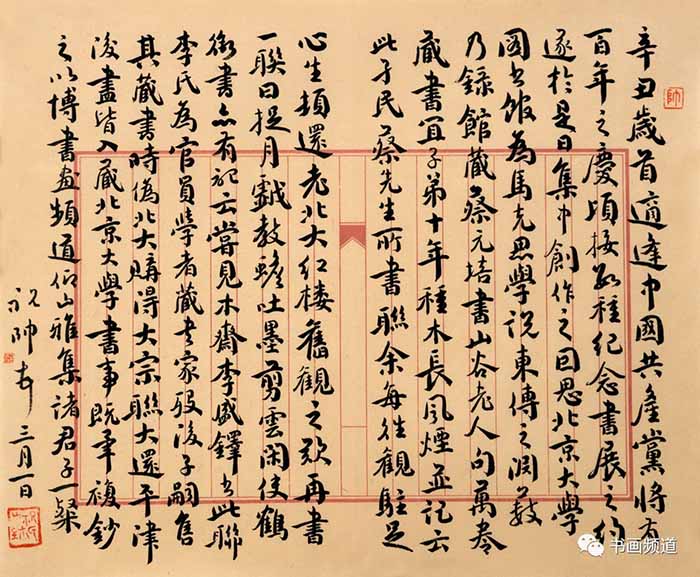 辛丑歲首適逢中國共產黨將有
百年之慶頃接數種紀念書展之約
遂於是日集中創作之回思北京大學
圖书館為馬克思學說東傳之淵藪
乃錄館藏蔡元培書山谷老人句萬卷
藏書宜子弟十年種木長風煙並記云
此孑民蔡先生所書聯余每往觀駐足
心生頓還老北大紅樓舊觀之歎再書
一聯曰捉月戲教蟾吐墨剪雲閑使鶴
銜書亦有記云嘗見木齋李盛鐸書此聯
李氏為官員學者藏書家歿後子嗣售
其藏書時偽北大購得大宗聯大還平津
後盡皆入藏北京大學書事既畢複鈔
之以博書畫頻道仰山雅集諸君子一粲
祝帥并 三月一日
帥
书画频道